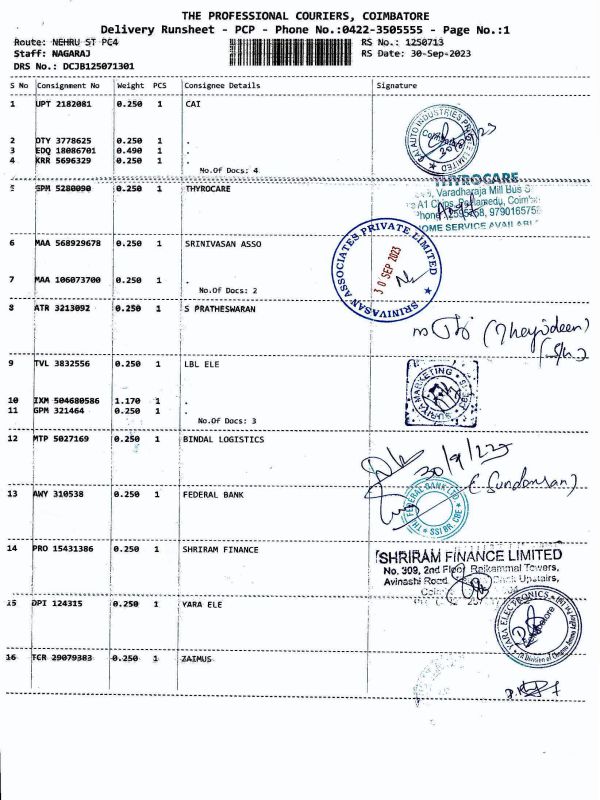 THE PROFESSIONAL COURIERS, COIMBATORE
Delivery Runsheet - PCP - Phone No.:0422-3505555 - Page No.:1
Route: NEHRU ST PC4 RS No.: 1250713
Staff: NAGARAJ RS Date: 30-Sep-2023
DRS No.: DCJB125071301
S No Consignment No Weight PCS Consignee Details Signature
1 UPT 2182081 0.250 1 CAI
2 DTY 3778625 0.250 1 .
3 EDQ 18086701 0.490 1 .
4 KRR 5696329 0.250 1 .
No.Of Docs: 4
CAI AUTO INDUSTRIES PRIVATE LIMITED
5 GPM 5280090 0.250 1 THYROCARE
THYROCARE
Varadharaja Mill Bus S
A1 Chips, Peelamedu, Coimb
HOME SERVICE AVAILABL
6 MAA 568929678 0.250 1 SRINIVASAN ASSO
7 MAA 106073700 0.250 1 .
No.Of Docs: 2
SRINIVASAN ASSOCIATES PRIVATE LIMITED
30 SEP 2023
8 ATR 3213092 0.250 1 S PRATHESWARAN
9 TVL 3832556 0.250 1 LBL ELE
10 IXM 504680586 1.170 1 .
11 GPM 321464 0.250 1 .
No.Of Docs: 3
SURIYA MARKETING
12 MTP 5027169 0.250 1 BINDAL LOGISTICS
30/9/223
(Sundarsan)
13 AWY 310538 0.250 1 FEDERAL BANK
THE FEDERAL BANK LTD. SSI BR. CBE
14 PRO 15431386 0.250 1 SHRIRAM FINANCE
SHRIRAM FINANCE LIMITED
No. 309, 2nd Floor, Raikammal Towers,
Avinashi Road Upstairs,
15 DPI 124315 0.250 1 YARA ELE
YARA ELECTRONICS
16 TCR 29079383 0.250 1 ZAIMUS